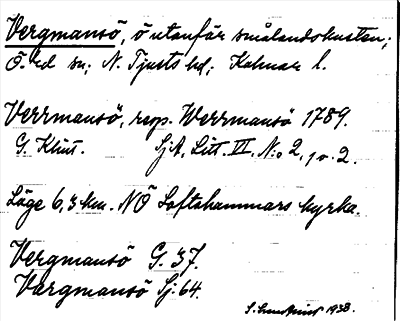 Vergmansö, ö utanför smålandskusten;
Ö. Ed sn; N. Tjusts hd; Kalmar l.
Verrmansö, resp. Werrmansö 1789.
G. Klint. SjA, Litt. III, N:o 2, 1 o. 2.
Läge 6,3 km. NÖ Loftahammars kyrka.
Vergmansö G. 37.
Vargmansö Sj. 64.
1938.